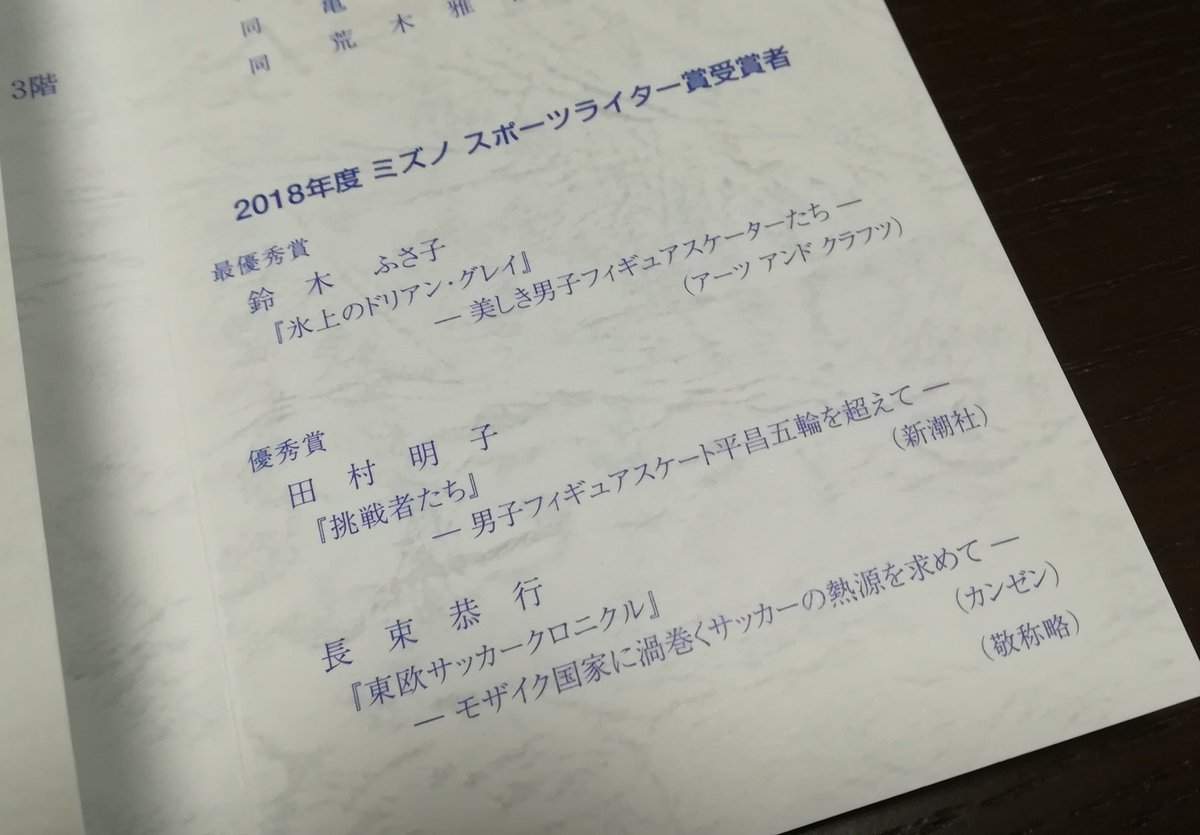 3階
同 亀
同 荒木雅
2018年度 ミズノ スポーツライター賞受賞者
最優秀賞
鈴木 ふさ子
『氷上のドリアン・グレイ』
― 美しき男子フィギュアスケーターたち ―
(アーツ アンド クラフツ)
優秀賞
田村明子
『挑戦者たち』
― 男子フィギュアスケート平昌五輪を超えて ―
(新潮社)
長束恭行
『東欧サッカークロニクル』
― モザイク国家に渦巻くサッカーの熱源を求めて ―
(カンゼン)
(敬称略)